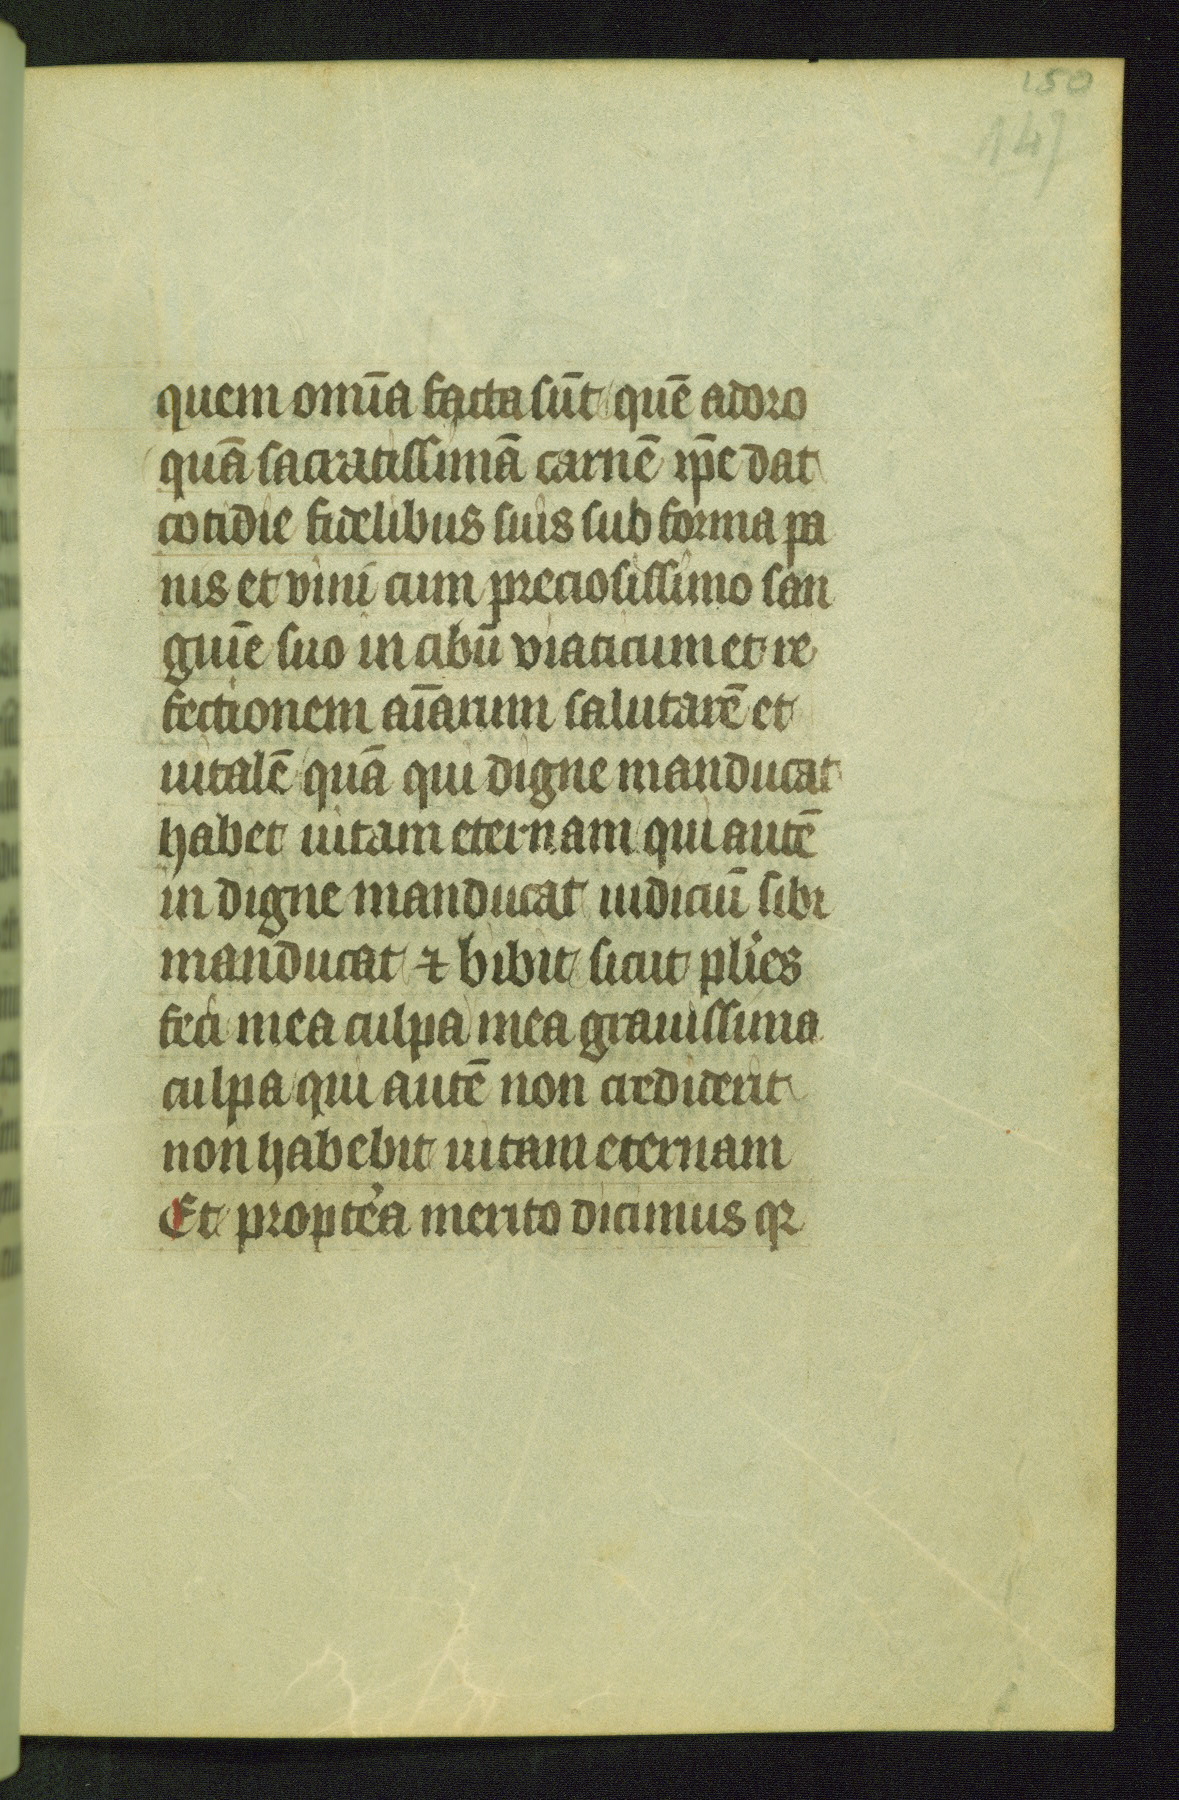 150
147
quem omīa facta sūt quē adoro
quā sacratissimā carnē ip̄e dat
cotidie fidelibus suis sub forma pa
nis et vini cum preciosissimo san
guīe suo in cibū viaticum et re
fectionem aīarum salutarē et
uitalē quā qui digne manducat
habet uitam eternam qui autē
in digne manducat iudiciū sibi
manducat ⁊ bibit sicut pl̄ies
feci mea culpa mea grauissima
culpa qui autē non crediderit
non habebit uitam eternam
Et propt̕ea merito dicimus qꝛ